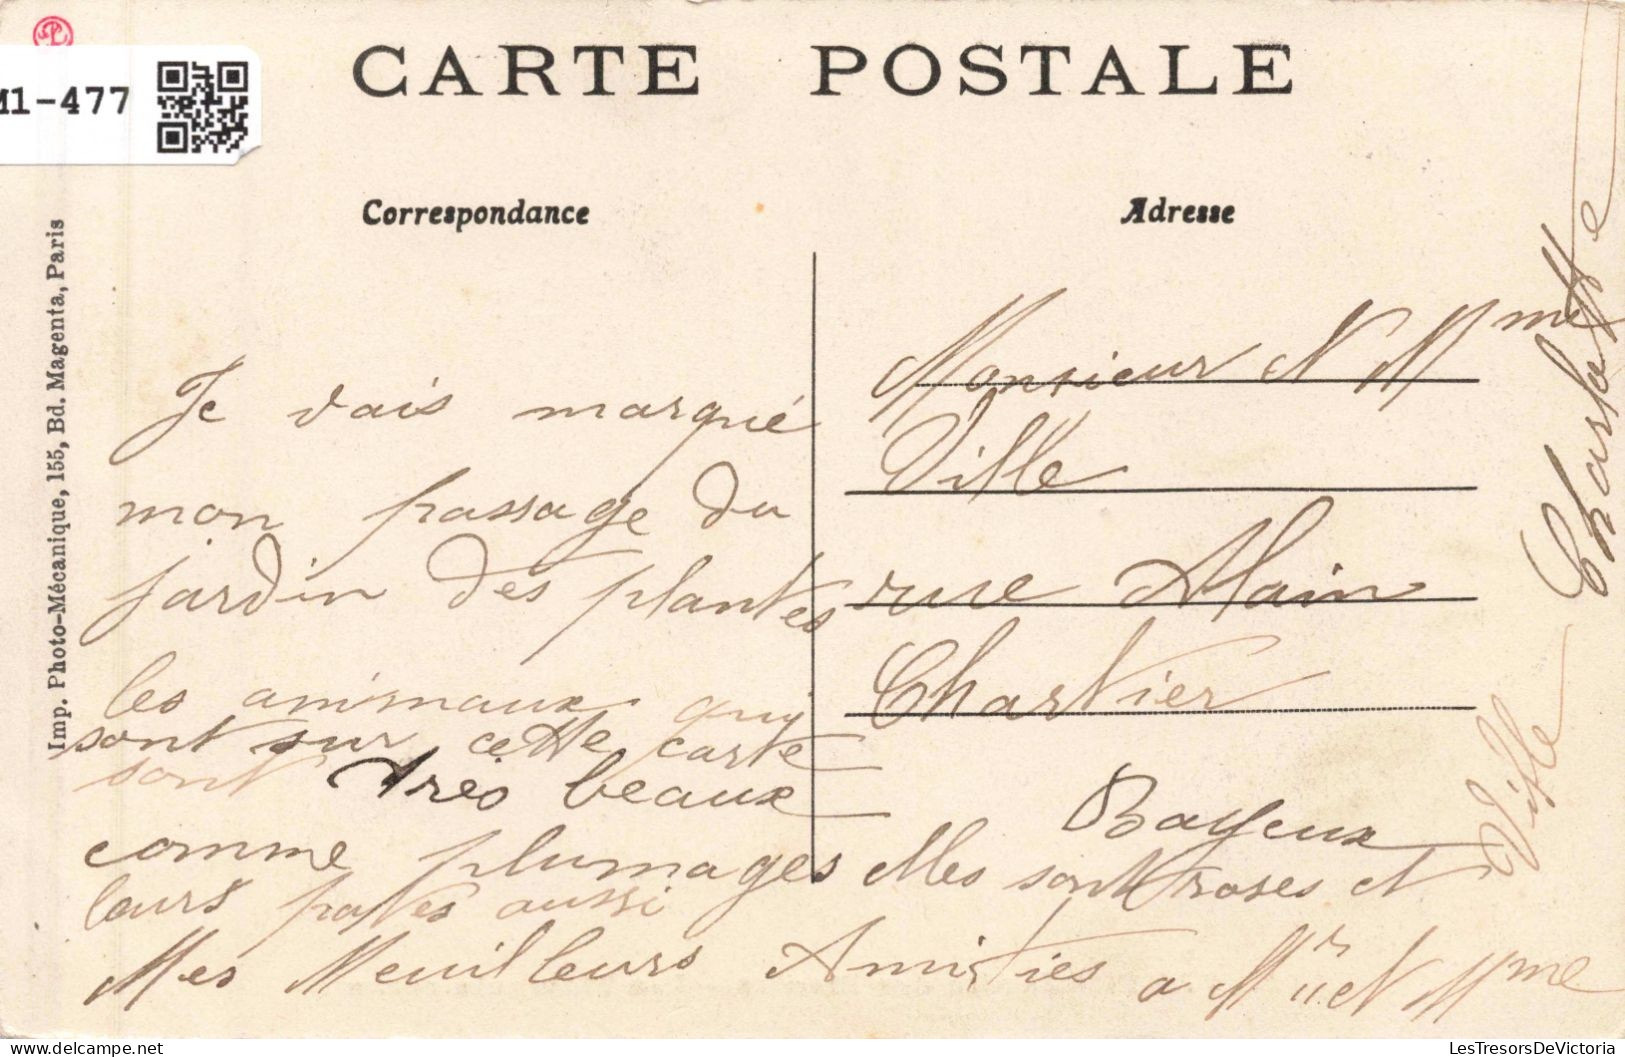 M1-477
CARTE POSTALE
Correspondance
Adresse
Imp. Photo-Mécanique, 155, Bd. Magenta, Paris
Je vais marqué
mon passage du
jardin des plantes
les animaux qui
sont sur cette carte
sont très beaux
comme plumages elles sont roses et
leurs pates aussi
Mes Meuilleurs Amitiés a Mr et Mme
Ville
Charlotte
Monsieur et Mme
Ville
rue Alain
Chartier
Bayeux
LesTresorsDeVictoria